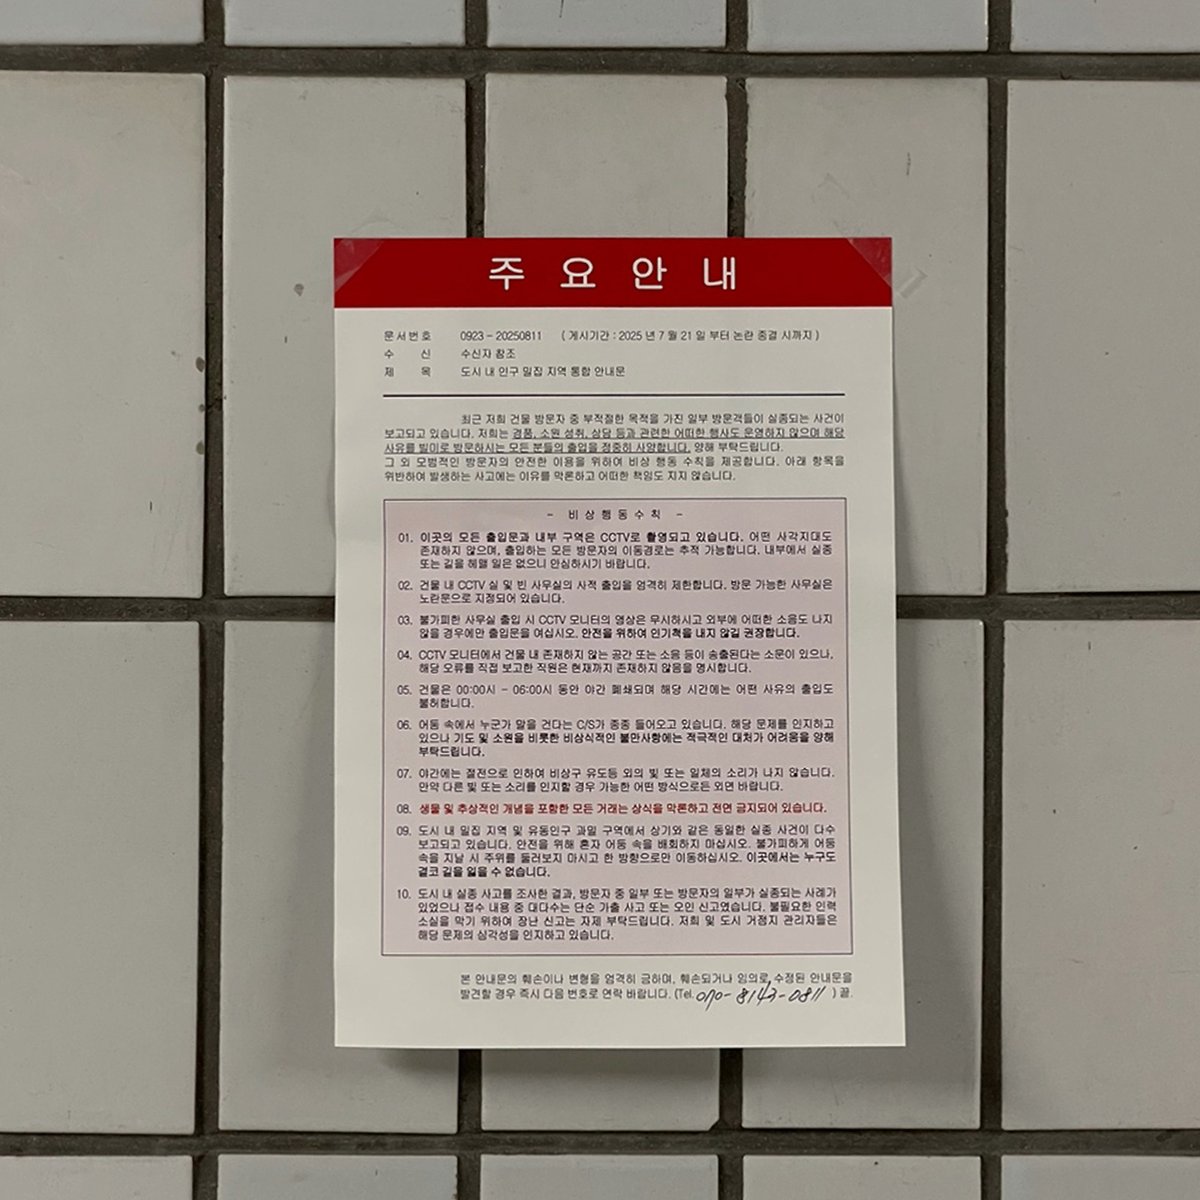 주요안내
문서번호 0923 - 20250811 ( 게시기간 : 2025 년 7 월 21 일 부터 논란 종결 시까지 )
수 신 수신자 참조
제 목 도시 내 인구 밀집 지역 통합 안내문
최근 저희 건물 방문자 중 부적절한 목적을 가진 일부 방문객들이 실종되는 사건이
보고되고 있습니다. 저희는 경품, 소원 성취, 상담 등과 관련한 어떠한 행사도 운영하지 않으며 해당
사유를 빌미로 방문하시는 모든 분들의 출입을 정중히 사양합니다. 양해 부탁드립니다.
그 외 모범적인 방문자의 안전한 이용을 위하여 비상 행동 수칙을 제공합니다. 아래 항목을
위반하여 발생하는 사고에는 이유를 막론하고 어떠한 책임도 지지 않습니다.
- 비상행동수칙 -
01. 이곳의 모든 출입문과 내부 구역은 CCTV로 촬영되고 있습니다. 어떤 사각지대도
존재하지 않으며, 출입하는 모든 방문자의 이동경로는 추적 가능합니다. 내부에서 실종
또는 길을 헤맬 일은 없으니 안심하시기 바랍니다.
02. 건물 내 CCTV 실 및 빈 사무실의 사적 출입을 엄격히 제한합니다. 방문 가능한 사무실은
노란문으로 지정되어 있습니다.
03. 불가피한 사무실 출입 시 CCTV 모니터의 영상은 무시하시고 외부에 어떠한 소음도 나지
않을 경우에만 출입문을 여십시오. 안전을 위하여 인기척을 내지 않길 권장합니다.
04. CCTV 모니터에서 건물 내 존재하지 않는 공간 또는 소음 등이 송출된다는 소문이 있으나,
해당 오류를 직접 보고한 직원은 현재까지 존재하지 않음을 명시합니다.
05. 건물은 00:00시 - 06:00시 동안 야간 폐쇄되며 해당 시간에는 어떤 사유의 출입도
불허합니다.
06. 어둠 속에서 누군가 말을 건다는 C/S가 종종 들어오고 있습니다. 해당 문제를 인지하고
있으나 기도 및 소원을 비롯한 비상식적인 불만사항에는 적극적인 대처가 어려움을 양해
부탁드립니다.
07. 야간에는 절전으로 인하여 비상구 유도등 외의 빛 또는 일체의 소리가 나지 않습니다.
만약 다른 빛 또는 소리를 인지할 경우 가능한 어떤 방식으로든 외면 바랍니다.
08. 생물 및 추상적인 개념을 포함한 모든 거래는 상식을 막론하고 전면 금지되어 있습니다.
09. 도시 내 밀집 지역 및 유동인구 과밀 구역에서 상기와 같은 동일한 실종 사건이 다수
보고되고 있습니다. 안전을 위해 혼자 어둠 속을 배회하지 마십시오. 불가피하게 어둠
속을 지날 시 주위를 둘러보지 마시고 한 방향으로만 이동하십시오. 이곳에서는 누구도
결코 길을 잃을 수 없습니다.
10. 도시 내 실종 사고를 조사한 결과, 방문자 중 일부 또는 방문자의 일부가 실종되는 사례가
있었으나 접수 내용 중 대다수는 단순 가출 사고 또는 오인 신고였습니다. 불필요한 인력
소실을 막기 위하여 장난 신고는 자제 부탁드립니다. 저희 및 도시 거점지 관리자들은
해당 문제의 심각성을 인지하고 있습니다.
본 안내문의 훼손이나 변형을 엄격히 금하며, 훼손되거나 임의로 수정된 안내문을
발견할 경우 즉시 다음 번호로 연락 바랍니다. (Tel. 070-8143-0811 ) 끝.